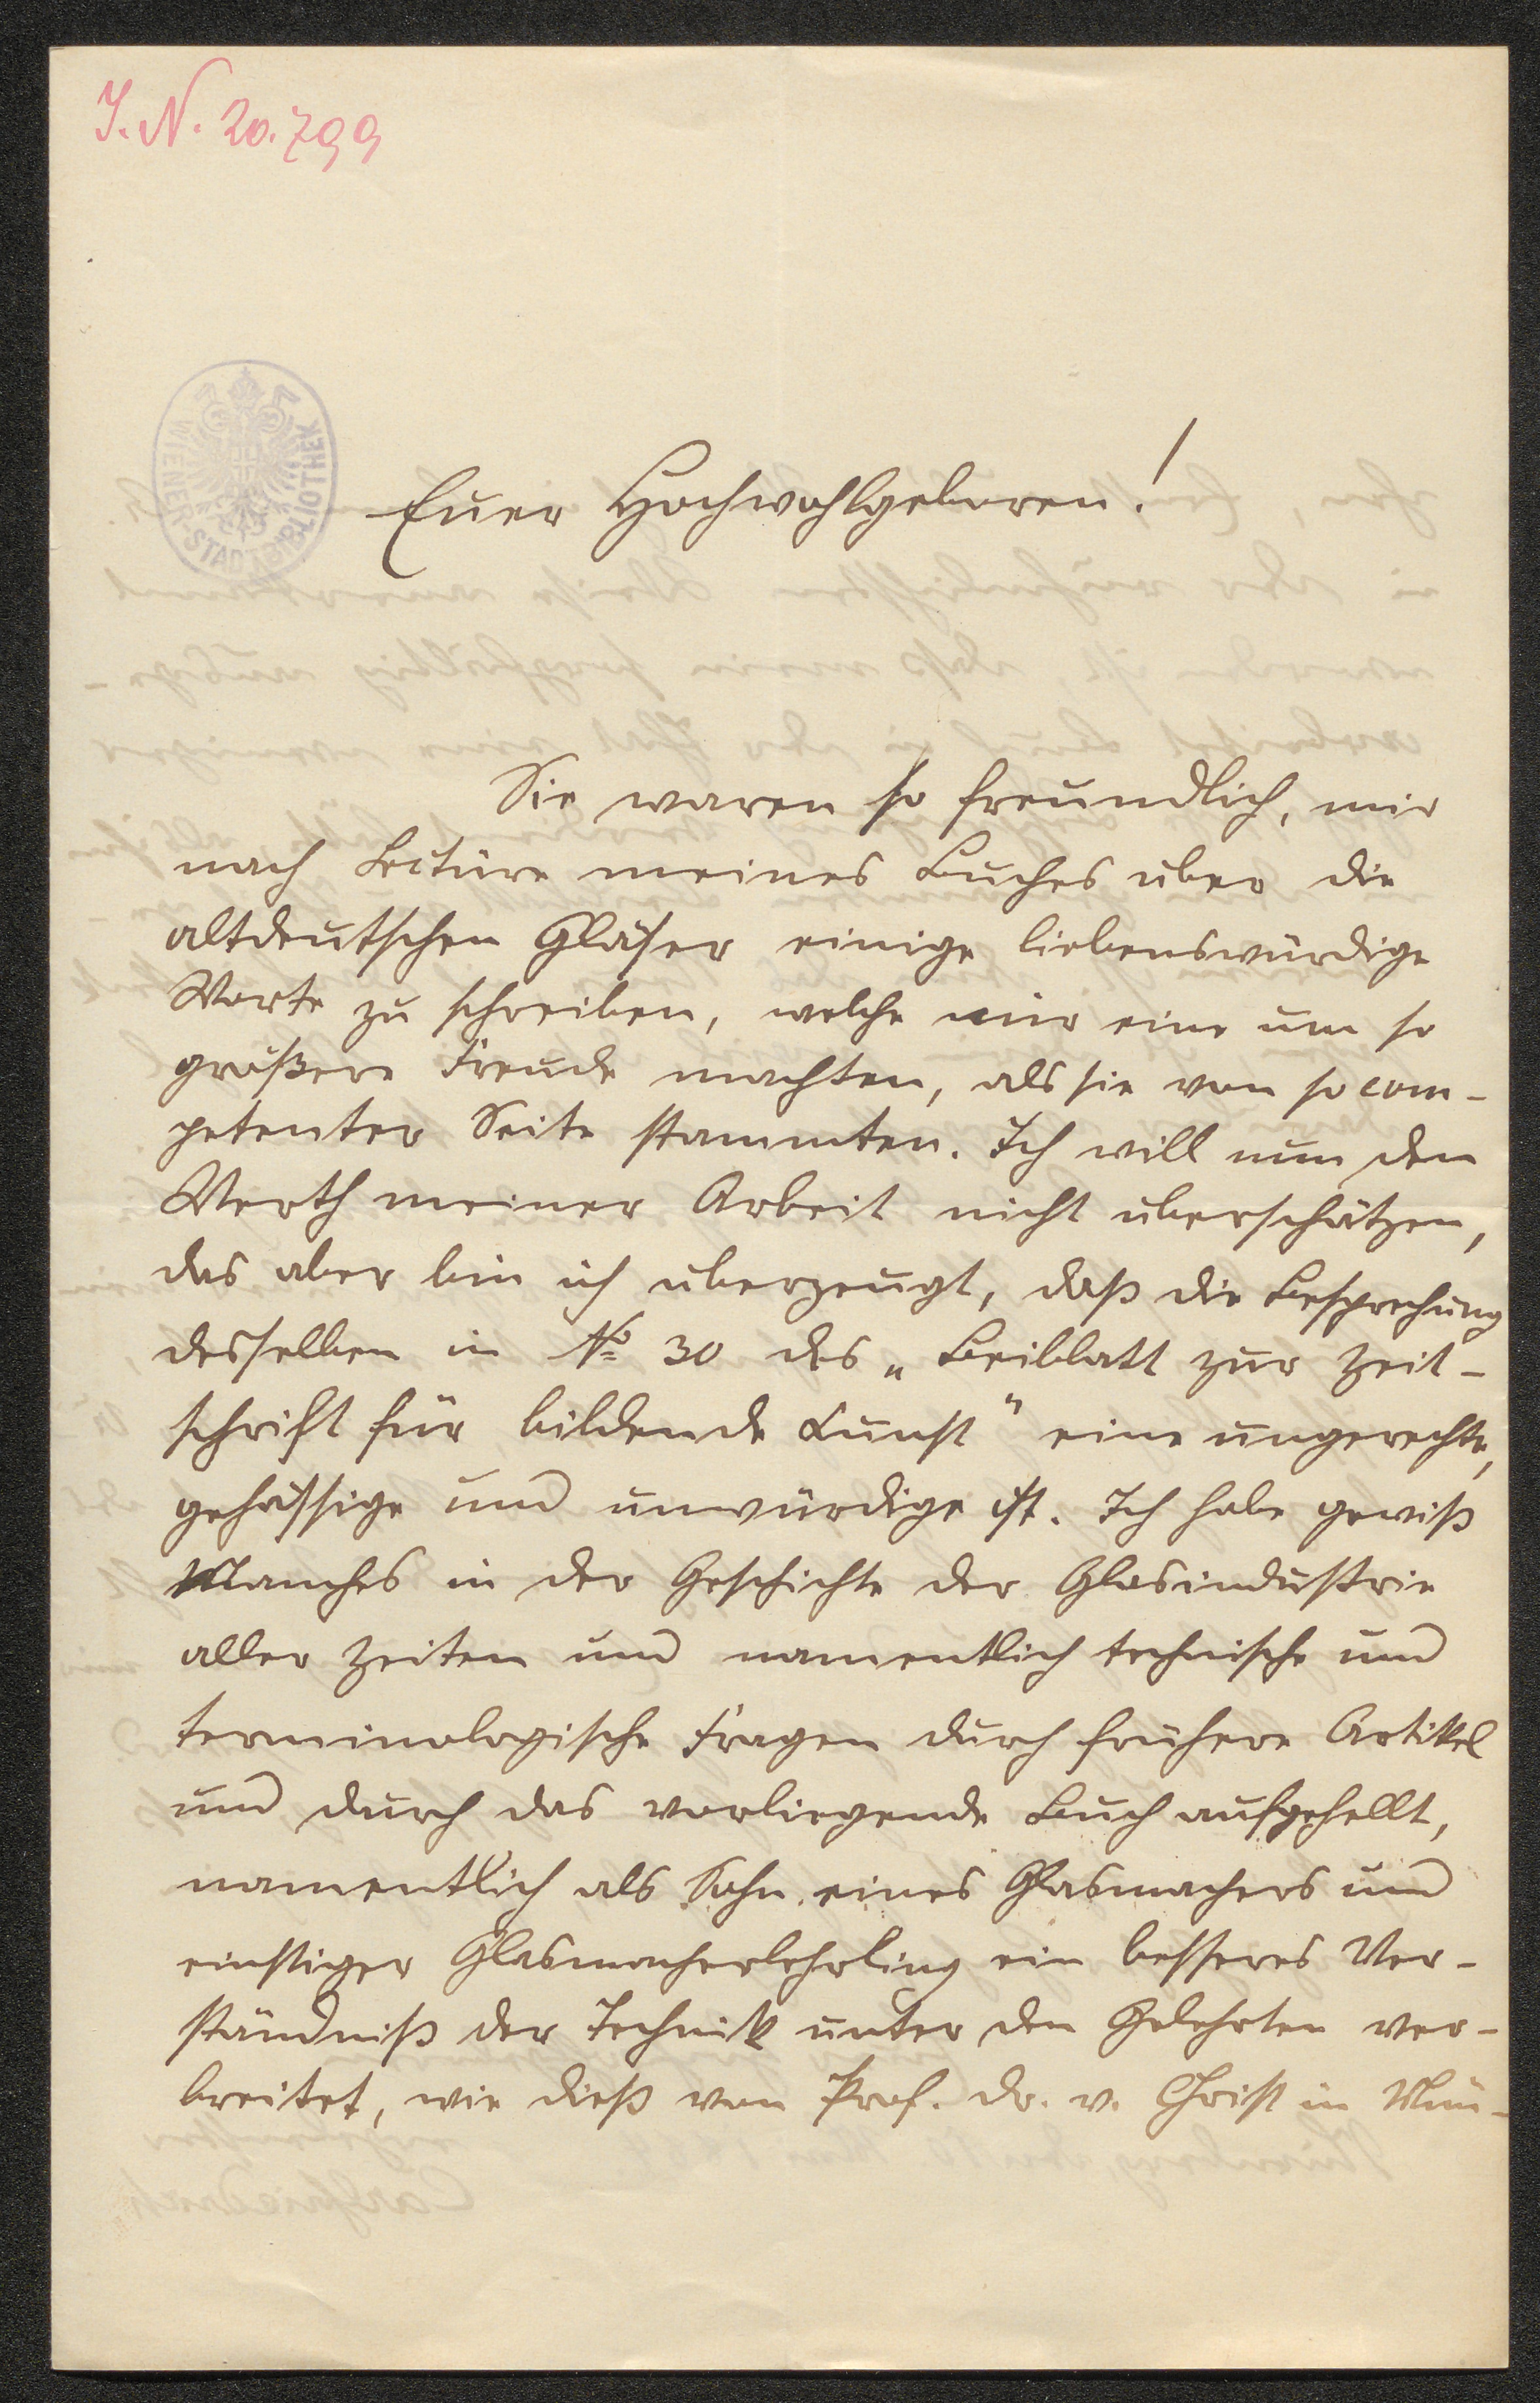 J. N. 20.799
WIENER STADTBIBLIOTHEK
Euer Hochwohlgeboren!
Sie waren so freundlich, mir
nach Lectüre meines Buches über die
altdeutschen Gläser einige liebenswürdige
Worte zu schreiben, welche mir eine um so
größere Freude machten, als sie von so com-
petenter Seite stammten. Ich will nun den
Werth meiner Arbeit nicht überschätzen,
das aber bin ich überzeugt, daß die Besprechung
desselben in No 30 des „Beiblatt zur Zeit-
schrift für bildende Kunst" eine ungerechte,
gehässige und unwürdige ist. Ich habe gewiß
Manches in der Geschichte der Glasindustrie
aller Zeiten und namentlich technische und
terminologische Fragen durch frühere Artikel
und durch das vorliegende Buch aufgehellt,
namentlich als Sohn eines Glasmachers und
einstiger Glasmacherlehrling ein besseres Ver-
ständniß der Technik unter den Gelehrten ver-
breitet, wie dieß von Prof. Dr. v. Christ in Mün-